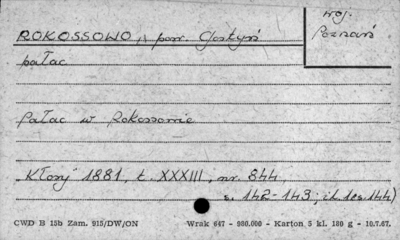 woj.
Poznań
ROKOSSOWO, pow. Gostyń
pałac
Pałac w Rokossowie
Kłosy 1881, t. XXXIII, nr. 844
s. 142-143; il. 144)
CWD B 15b Zam. 915/DW/ON Wrak 647 - 980.000 - Karton 5 kl. 180 g - 10.7.67.